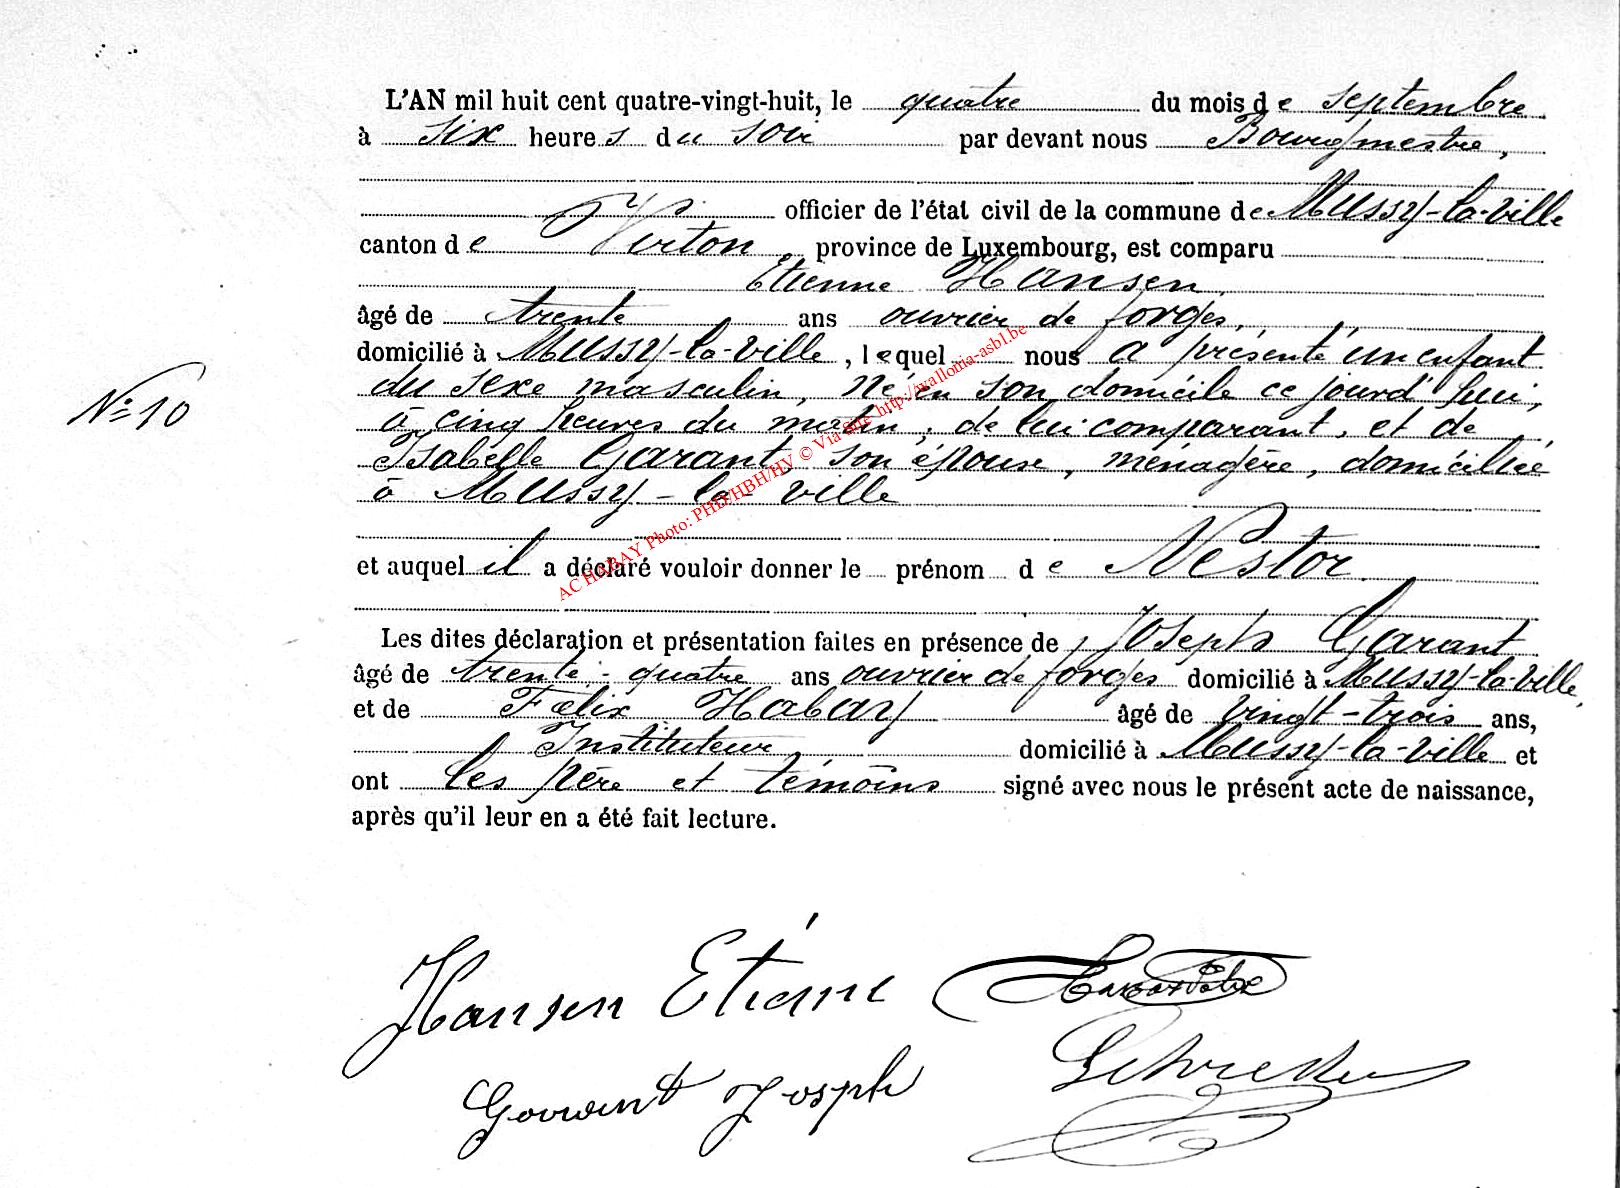 L'AN mil huit cent quatre-vingt-huit, le quatre du mois de septembre
à six heures du soir par devant nous Bourgmestre,
officier de l'état civil de la commune de Mussy-la-ville
canton de Virton, province de Luxembourg, est comparu
Etienne Hansen,
âgé de trente ans ouvrier de forges,
domicilié à Mussy-la-ville, lequel nous a présenté un enfant
du sexe masculin, né en son domicile ce jourd'hui,
N° 10
à cinq heures du matin, de lui comparant, et de
Isabelle Garant, son épouse, ménagère, domiciliée
à Mussy-la-ville
et auquel il a déclaré vouloir donner le prénom de Nestor.
Les dites déclaration et présentation faites en présence de Joseph Garant
âgé de trente-quatre ans ouvrier de forges domicilié à Mussy-la-ville,
et de Félix Habay âgé de vingt-trois ans,
Instituteur, domicilié à Mussy-la-ville et
ont les père et témoins signé avec nous le présent acte de naissance,
après qu'il leur en a été fait lecture.
AC HABAY Photo: PHD/HBH/HV © Via Site http://wallonia-asbl.be
Hansen Etiéne
Garant Joseph